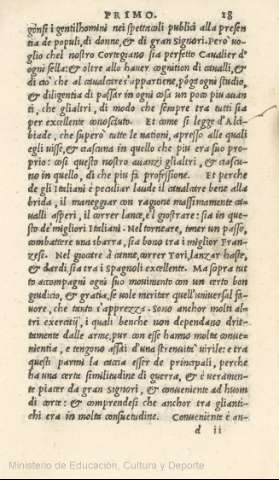 PRIMO. 18
gonsi i gentilhomini nei spettacoli publici alla presen
tia de populi, di donne, & di gran signori. Però vo
glio chel nostro Cortegiano sia perfetto Cavalier d'
ogni sella: & oltre allo haver cognition di cavalli, &
di ciò che al cavalcare s'appartiene, pōga ogni studio,
& diligentia di passar in ogni cosa un poco piu avan
ti, che glialtri, di modo che sempre tra tutti sia
per excellente conosciuto. Et come si legge d'Alci
biade, che superò tutte le nationi, apresso alle quali
egli visse, & ciascuna in quello che piu era suo pro
prio: cosi questo nostro avanzi glialtri, & ciascu
no in quello, di che piu fa professione. Et perche
de gli Italiani è peculiar laude il cavalcare bene alla
brida, il maneggiar con ragione massimamente ca
valli asperi, il correr lance, e'l giostrare: sia in que-
sto de migliori Italiani. Nel torneare, tener un passo,
combattere una sbarra, sia bono tra i miglior Fran-
zesi. Nel giocare à canne, correr Tori, lanzar haste,
& dardi, sia tra i Spagnoli excellente. Ma sopra tut
to accompagni ogni suo movimento con un certo bon
giudicio, & gratia, se vole meriter quell'universal fa
vore, che tanto s'apprezza. Sono anchor molti al-
tri exercitij, i quali benche non dependano drit-
tamente dalle arme, pur con esse hanno molta conve-
nientia, e tengono assai d'una strenuità virile: e tra
questi parmi la caccia esser de principali, perche
ha una certa similitudine di guerra, & è veramen-
te piacer da gran signori, & conveniente ad huom
di corte: & comprendesi che anchor tra glianti-
chi era in molta consuetudine. Conveniente è an-
d ii
Ministerio de Educación, Cultura y Deporte